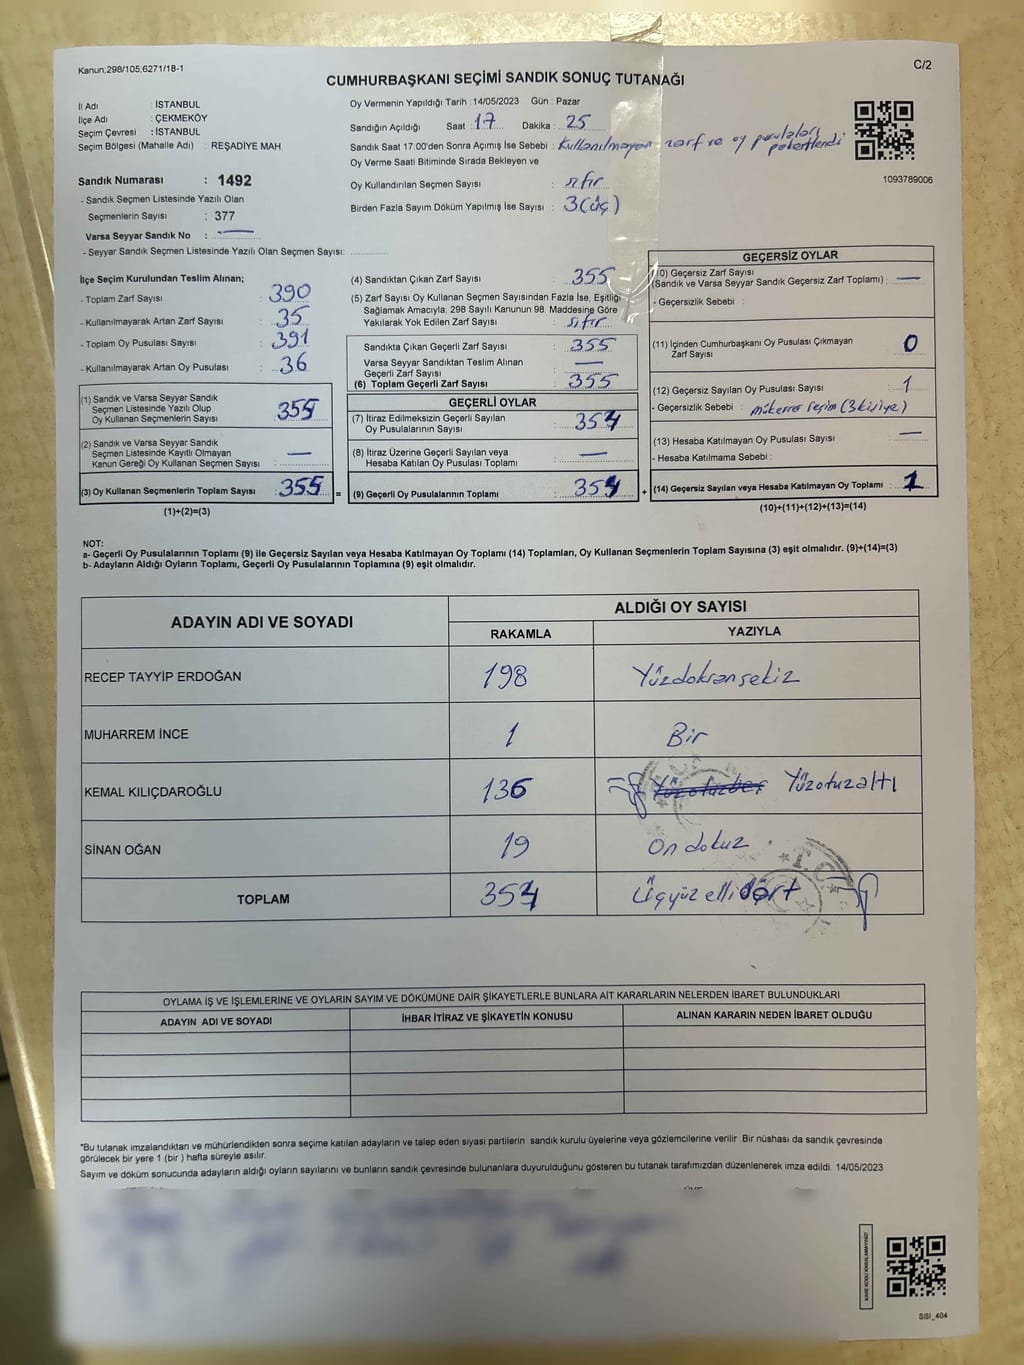 Kanun,298/105,6271/18-1
C/2
CUMHURBAŞKANI SEÇİMİ SANDIK SONUÇ TUTANAĞI
İl Adı : İSTANBUL
İlçe Adı : ÇEKMEKÖY
Seçim Çevresi : İSTANBUL
Seçim Bölgesi (Mahalle Adı) : REŞADİYE MAH.
Sandık Numarası : 1492
- Sandık Seçmen Listesinde Yazılı Olan
Seçmenlerin Sayısı : 377
Varsa Seyyar Sandık No : —
- Seyyar Sandık Seçmen Listesinde Yazılı Olan Seçmen Sayısı:
Oy Vermenin Yapıldığı Tarih : 14/05/2023 Gün : Pazar
Sandığın Açıldığı Saat : 17 Dakika : 25
Sandık Saat 17:00'den Sonra Açımış İse Sebebi : Kullanılmayan zarf ve oy pusulaları paketlendi
Oy Verme Saati Bitiminde Sırada Bekleyen ve
Oy Kullandırılan Seçmen Sayısı : sıfır
Birden Fazla Sayım Döküm Yapılmış İse Sayısı : 3 (üç)
1093789006
İlçe Seçim Kurulundan Teslim Alınan;
- Toplam Zarf Sayısı : 390
- Kullanılmayarak Artan Zarf Sayısı : 35
- Toplam Oy Pusulası Sayısı : 391
- Kullanılmayarak Artan Oy Pusulası : 36
(1) Sandık ve Varsa Seyyar Sandık
Seçmen Listesinde Yazılı Olup
Oy Kullanan Seçmenlerin Sayısı : 355
(2) Sandık ve Varsa Seyyar Sandık
Seçmen Listesinde Kayıtlı Olmayan
Kanun Gereği Oy Kullanan Seçmen Sayısı : —
(3) Oy Kullanan Seçmenlerin Toplam Sayısı : 355 =
(1)+(2)=(3)
(4) Sandıktan Çıkan Zarf Sayısı : 355
(5) Zarf Sayısı Oy Kullanan Seçmen Sayısından Fazla İse, Eşitliği
Sağlamak Amacıyla, 298 Sayılı Kanunun 98. Maddesine Göre
Yakılarak Yok Edilen Zarf Sayısı : sıfır
Sandıkta Çıkan Geçerli Zarf Sayısı : 355
Varsa Seyyar Sandıktan Teslim Alınan
Geçerli Zarf Sayısı : —
(6) Toplam Geçerli Zarf Sayısı : 355
GEÇERLİ OYLAR
(7) İtiraz Edilmeksizin Geçerli Sayılan
Oy Pusulalarının Sayısı : 354
(8) İtiraz Üzerine Geçerli Sayılan veya
Hesaba Katılan Oy Pusulası Toplamı : —
(9) Geçerli Oy Pusulalarının Toplamı : 354 +
GEÇERSİZ OYLAR
0) Geçersiz Zarf Sayısı
(Sandık ve Varsa Seyyar Sandık Geçersiz Zarf Toplamı) : —
- Geçersizlik Sebebi :
(11) İçinden Cumhurbaşkanı Oy Pusulası Çıkmayan
Zarf Sayısı : 0
(12) Geçersiz Sayılan Oy Pusulası Sayısı : 1
- Geçersizlik Sebebi : mükerrer seçim (3 kişiye)
(13) Hesaba Katılmayan Oy Pusulası Sayısı : —
- Hesaba Katılmama Sebebi :
(14) Geçersiz Sayılan veya Hesaba Katılmayan Oy Toplamı : 1
(10)+(11)+(12)+(13)=(14)
NOT:
a- Geçerli Oy Pusulalarının Toplamı (9) ile Geçersiz Sayılan veya Hesaba Katılmayan Oy Toplamı (14) Toplamları, Oy Kullanan Seçmenlerin Toplam Sayısına (3) eşit olmalıdır. (9)+(14)=(3)
b- Adayların Aldığı Oyların Toplamı, Geçerli Oy Pusulalarının Toplamına (9) eşit olmalıdır.
ADAYIN ADI VE SOYADI
ALDIĞI OY SAYISI
RAKAMLA YAZIYLA
RECEP TAYYİP ERDOĞAN 198 Yüzdoksansekiz
MUHARREM İNCE 1 Bir
KEMAL KILIÇDAROĞLU 136 Yüzotuzbeş Yüzotuzaltı
SİNAN OĞAN 19 On dokuz
TOPLAM 354 Üçyüz ellidört
T.C.
OYLAMA İŞ VE İŞLEMLERİNE VE OYLARIN SAYIM VE DÖKÜMÜNE DAİR ŞİKAYETLERLE BUNLARA AİT KARARLARIN NELERDEN İBARET BULUNDUKLARI
ADAYIN ADI VE SOYADI İHBAR İTİRAZ VE ŞİKAYETİN KONUSU ALINAN KARARIN NEDEN İBARET OLDUĞU
*Bu tutanak imzalandıktan ve mühürlendikten sonra seçime katılan adayların ve talep eden siyasi partilerin sandık kurulu üyelerine veya gözlemcilerine verilir. Bir nüshası da sandık çevresinde
görülecek bir yere 1 (bir) hafta süreyle asılır.
Sayım ve döküm sonucunda adayların aldığı oyların sayılarını ve bunların sandık çevresinde bulunanlara duyurulduğunu gösteren bu tutanak tarafımızdan düzenlenerek imza edildi. 14/05/2023
SSI_404